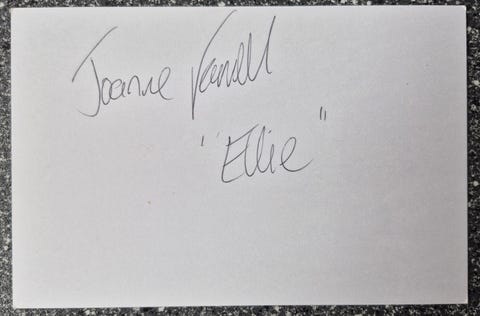 Joanne Farrell
"Ellie"